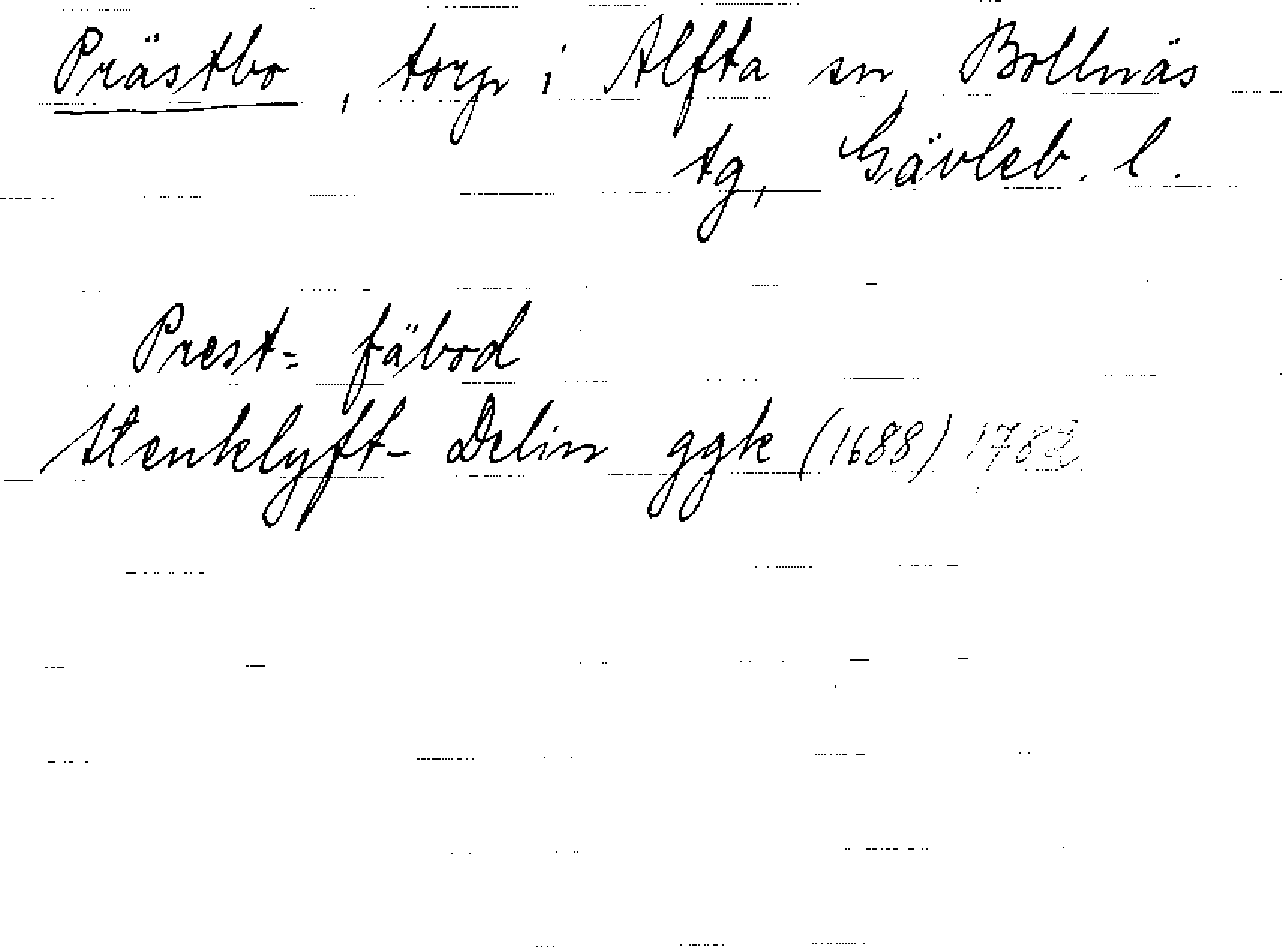 Prästbo, torp i Alfta sn, Bollnäs
tg, Gävleb. l.
Prest= fäbod
Stenklyft- Delin ggk (1688) 1782